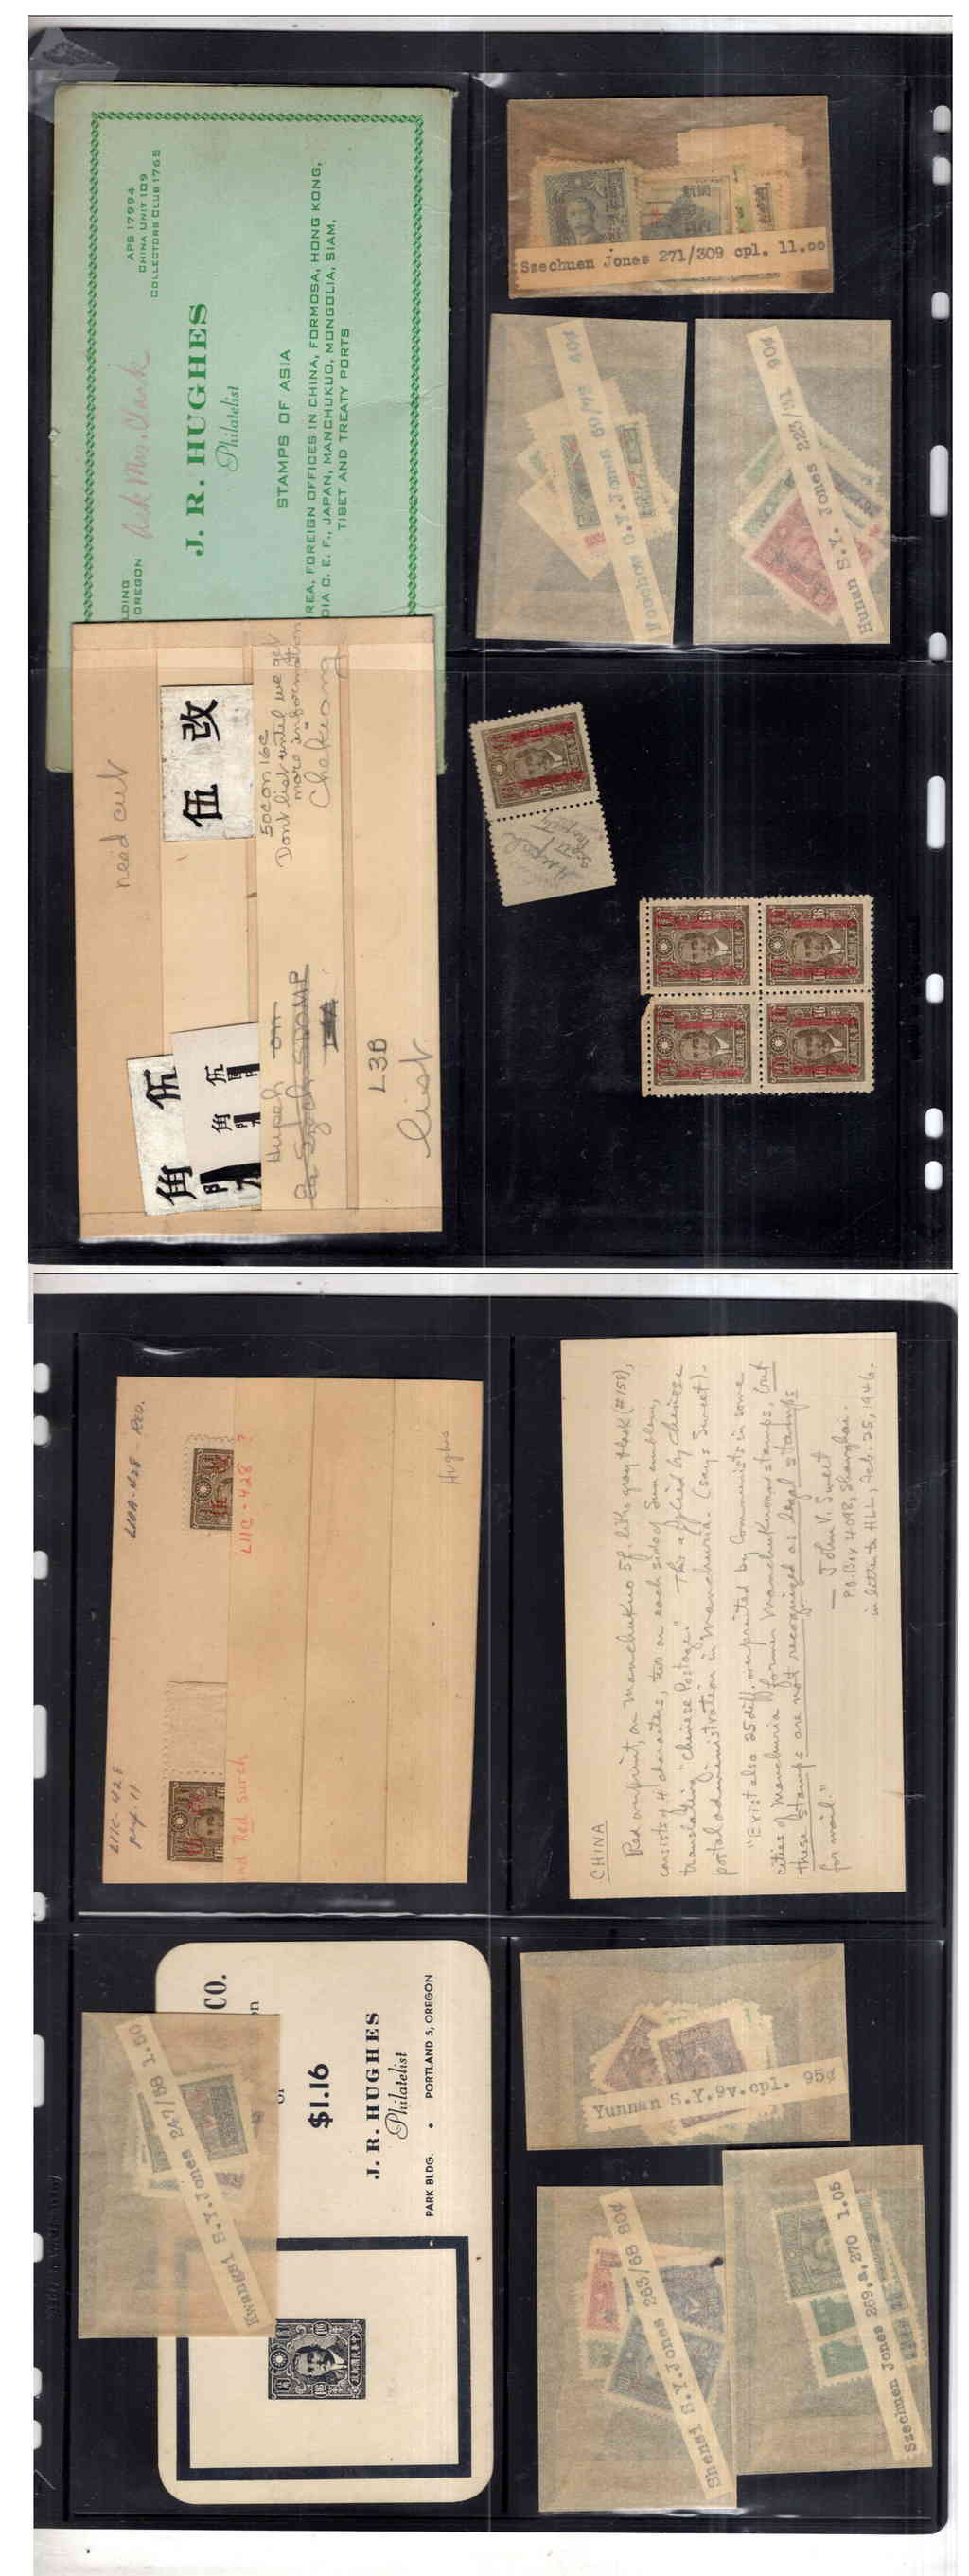 APS 17994
CHINA UNIT 109
COLLECTORS CLUB 1765
Ask Mrs. Clark
LDING
OREGON
J. R. HUGHES
Philatelist
STAMPS OF ASIA
REA, FOREIGN OFFICES IN CHINA, FORMOSA, HONG KONG,
DIA C. E. F., JAPAN, MANCHUKUO, MONGOLIA, SIAM,
TIBET AND TREATY PORTS
Szechuen Jones 271/309 cpl. 11.00
Foochow S.Y.Jones 80¢
Hunan S.Y. Jones 90¢
need cut
改
伍
50c on 16c
Don't list until we get
more information
Chekiang
伍
角
伍
角
Hupeh on
L3B
list
Hupeh
16
16
16
16
16
L11A-428 - Red.
L11C-428
perf 11
L11C-428 ?
Red Surch
Hughes
CHINA
Red overprint, on Manchukuo 5f. litho gray black (#158),
consists of 4 characters, two on each side of Sun emblem,
translating "Chinese Postage." This applied by Chinese
postal administration in Manchuria. (says Sweet).
"Exist also 25 diff. overprinted by Communists in some
cities of Manchuria former Manchukuo stamps, but
these stamps are not recognized as legal stamps
for mail."
— John V. Sweet
P.O. Box 4098, Shanghai.
in letter to HLL, Feb. 25, 1946.
CO.
$1.16
J. R. HUGHES
Philatelist
PARK BLDG. • PORTLAND 5, OREGON
Kwangsi S.Y.Jones 247/58 1.50
Yunnan S.Y.9v.cpl. 95¢
Shensi S.Y.Jones 263/68 80¢
Szechuen Jones 269,a,270 1.05